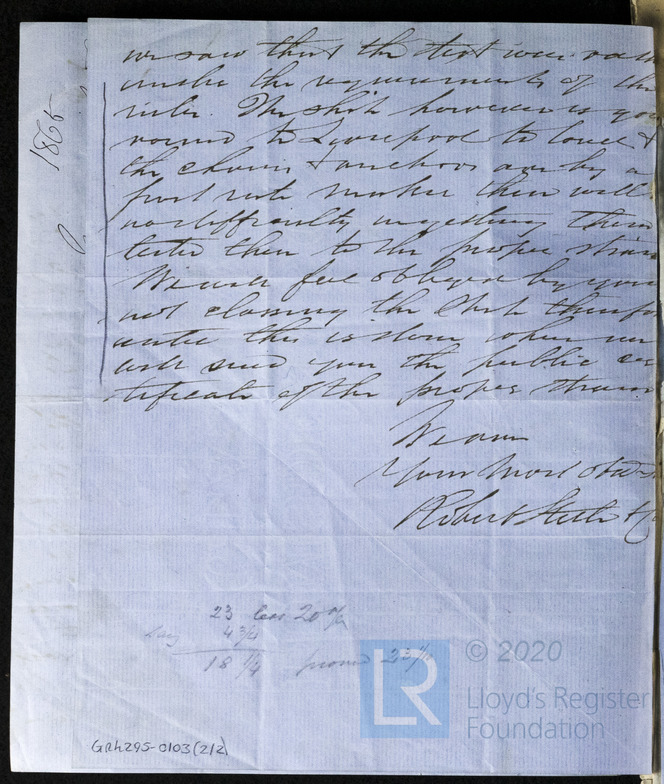 we saw that the test was
under the requirements of the
rules. The ship however is
round to Liverpool to load &
the chains & anchors are by a
first rate maker there will
no difficulty in getting them
tested then to the proper strain
We will feel obliged by your
not classing the ship
until this is done when we
will send you the public cer
tificate of the proper strain
We are
Your most obed
Robert Steele & C
1865
23 less 20 %
say 4 3/4
18 1/4 proved
LR © 2020
Lloyd's Register
Foundation
GRH295-0103(2/2)